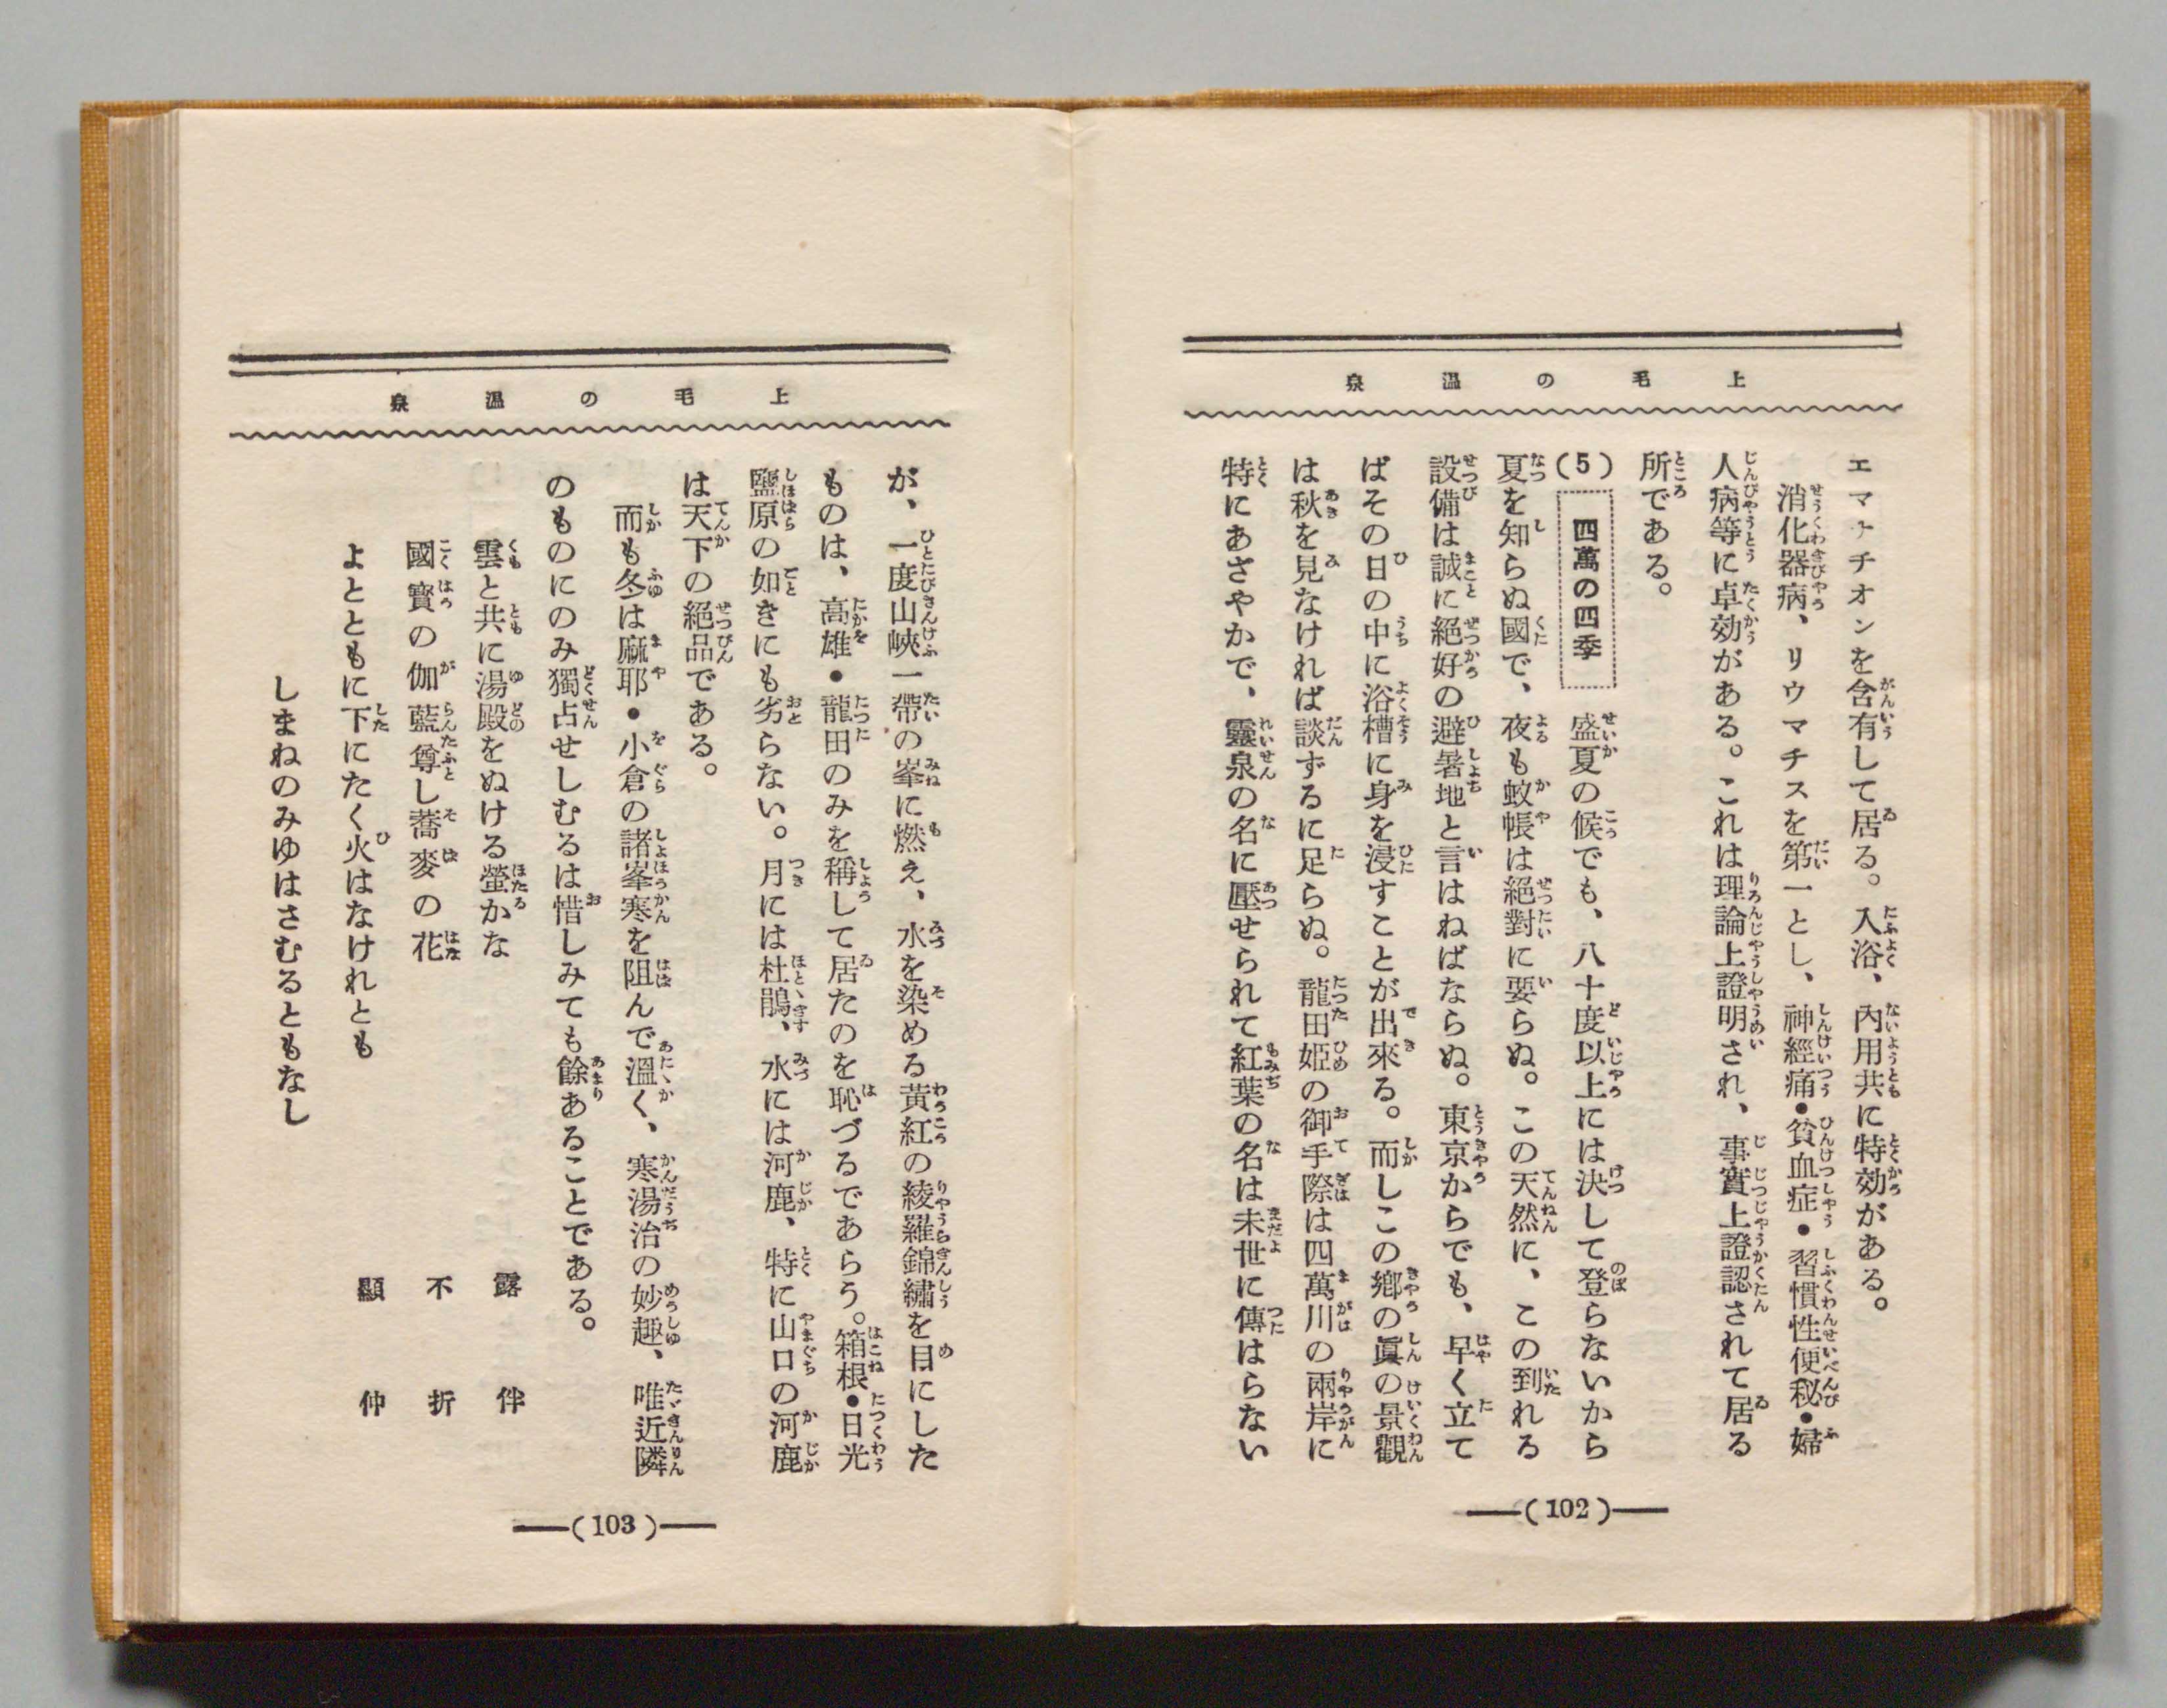 上毛の温泉
エマナチオンを含有して居る。入浴、内用共に特効がある。
消化器病、リウマチスを第一とし、神經痛・貧血症・習慣性便秘・婦
人病等に卓効がある。これは理論上證明され、事實上證認されて居る
所である。
(5) 四萬の四季 盛夏の候でも、八十度以上には決して登らないから
夏を知らぬ國で、夜も蚊帳は絕對に要らぬ。この天然に、この到れる
設備は誠に絕好の避暑地と言はねばならぬ。東京からでも、早く立て
ばその日の中に浴槽に身を浸すことが出來る。而しこの鄕の眞の景觀
は秋を見なければ談ずるに足らぬ。龍田姬の御手際は四萬川の兩岸に
特にあざやかで、靈泉の名に壓せられて紅葉の名は未世に傳はらない
(102)
上毛の温泉
が、一度山峽一帶の峯に燃え、水を染める黃紅の綾羅錦繡を目にした
ものは、高雄・龍田のみを稱して居たのを恥づるであらう。箱根・日光
鹽原の如きにも劣らない。月には杜鵑、水には河鹿、特に山口の河鹿
は天下の絕品である。
而も冬は麻耶・小倉の諸峯寒を阻んで溫く、寒湯治の妙趣、唯近隣
のものにのみ獨占せしむるは惜しみても餘あることである。
雲と共に湯殿をぬける螢かな 露伴
國寳の伽藍尊し蕎麥の花 不折
よとともに下にたく火はなけれとも 顯仲
しまねのみゆはさむるともなし
(103)